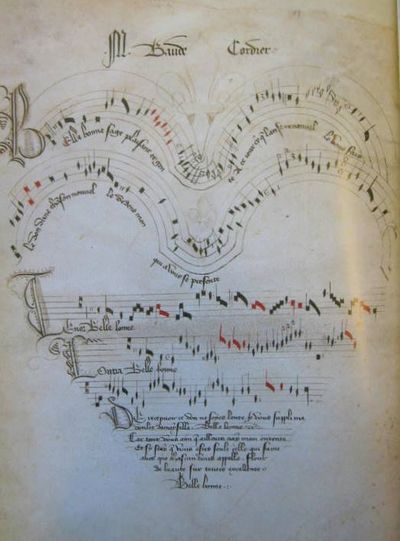 M. Baude Cordier
Belle bonne sage plaisant et gen
te A ce jour cy que lan se renouvel
le Vous fais
le don dune chanson nouvel le Dedens mon
qui a vous se presente
Tenor Belle bonne
Contra Belle bonne
De recepvoir ce don ne soyes lente Je vous suppli ma
doulce damoyselle Belle bonne
Car tant vous aim qu aillours nay mon entente
Et sy scay que vous estes seule celle qui fame
aves que chascun vous appelle Flour
de beaute sur toutes excellente
Belle bonne